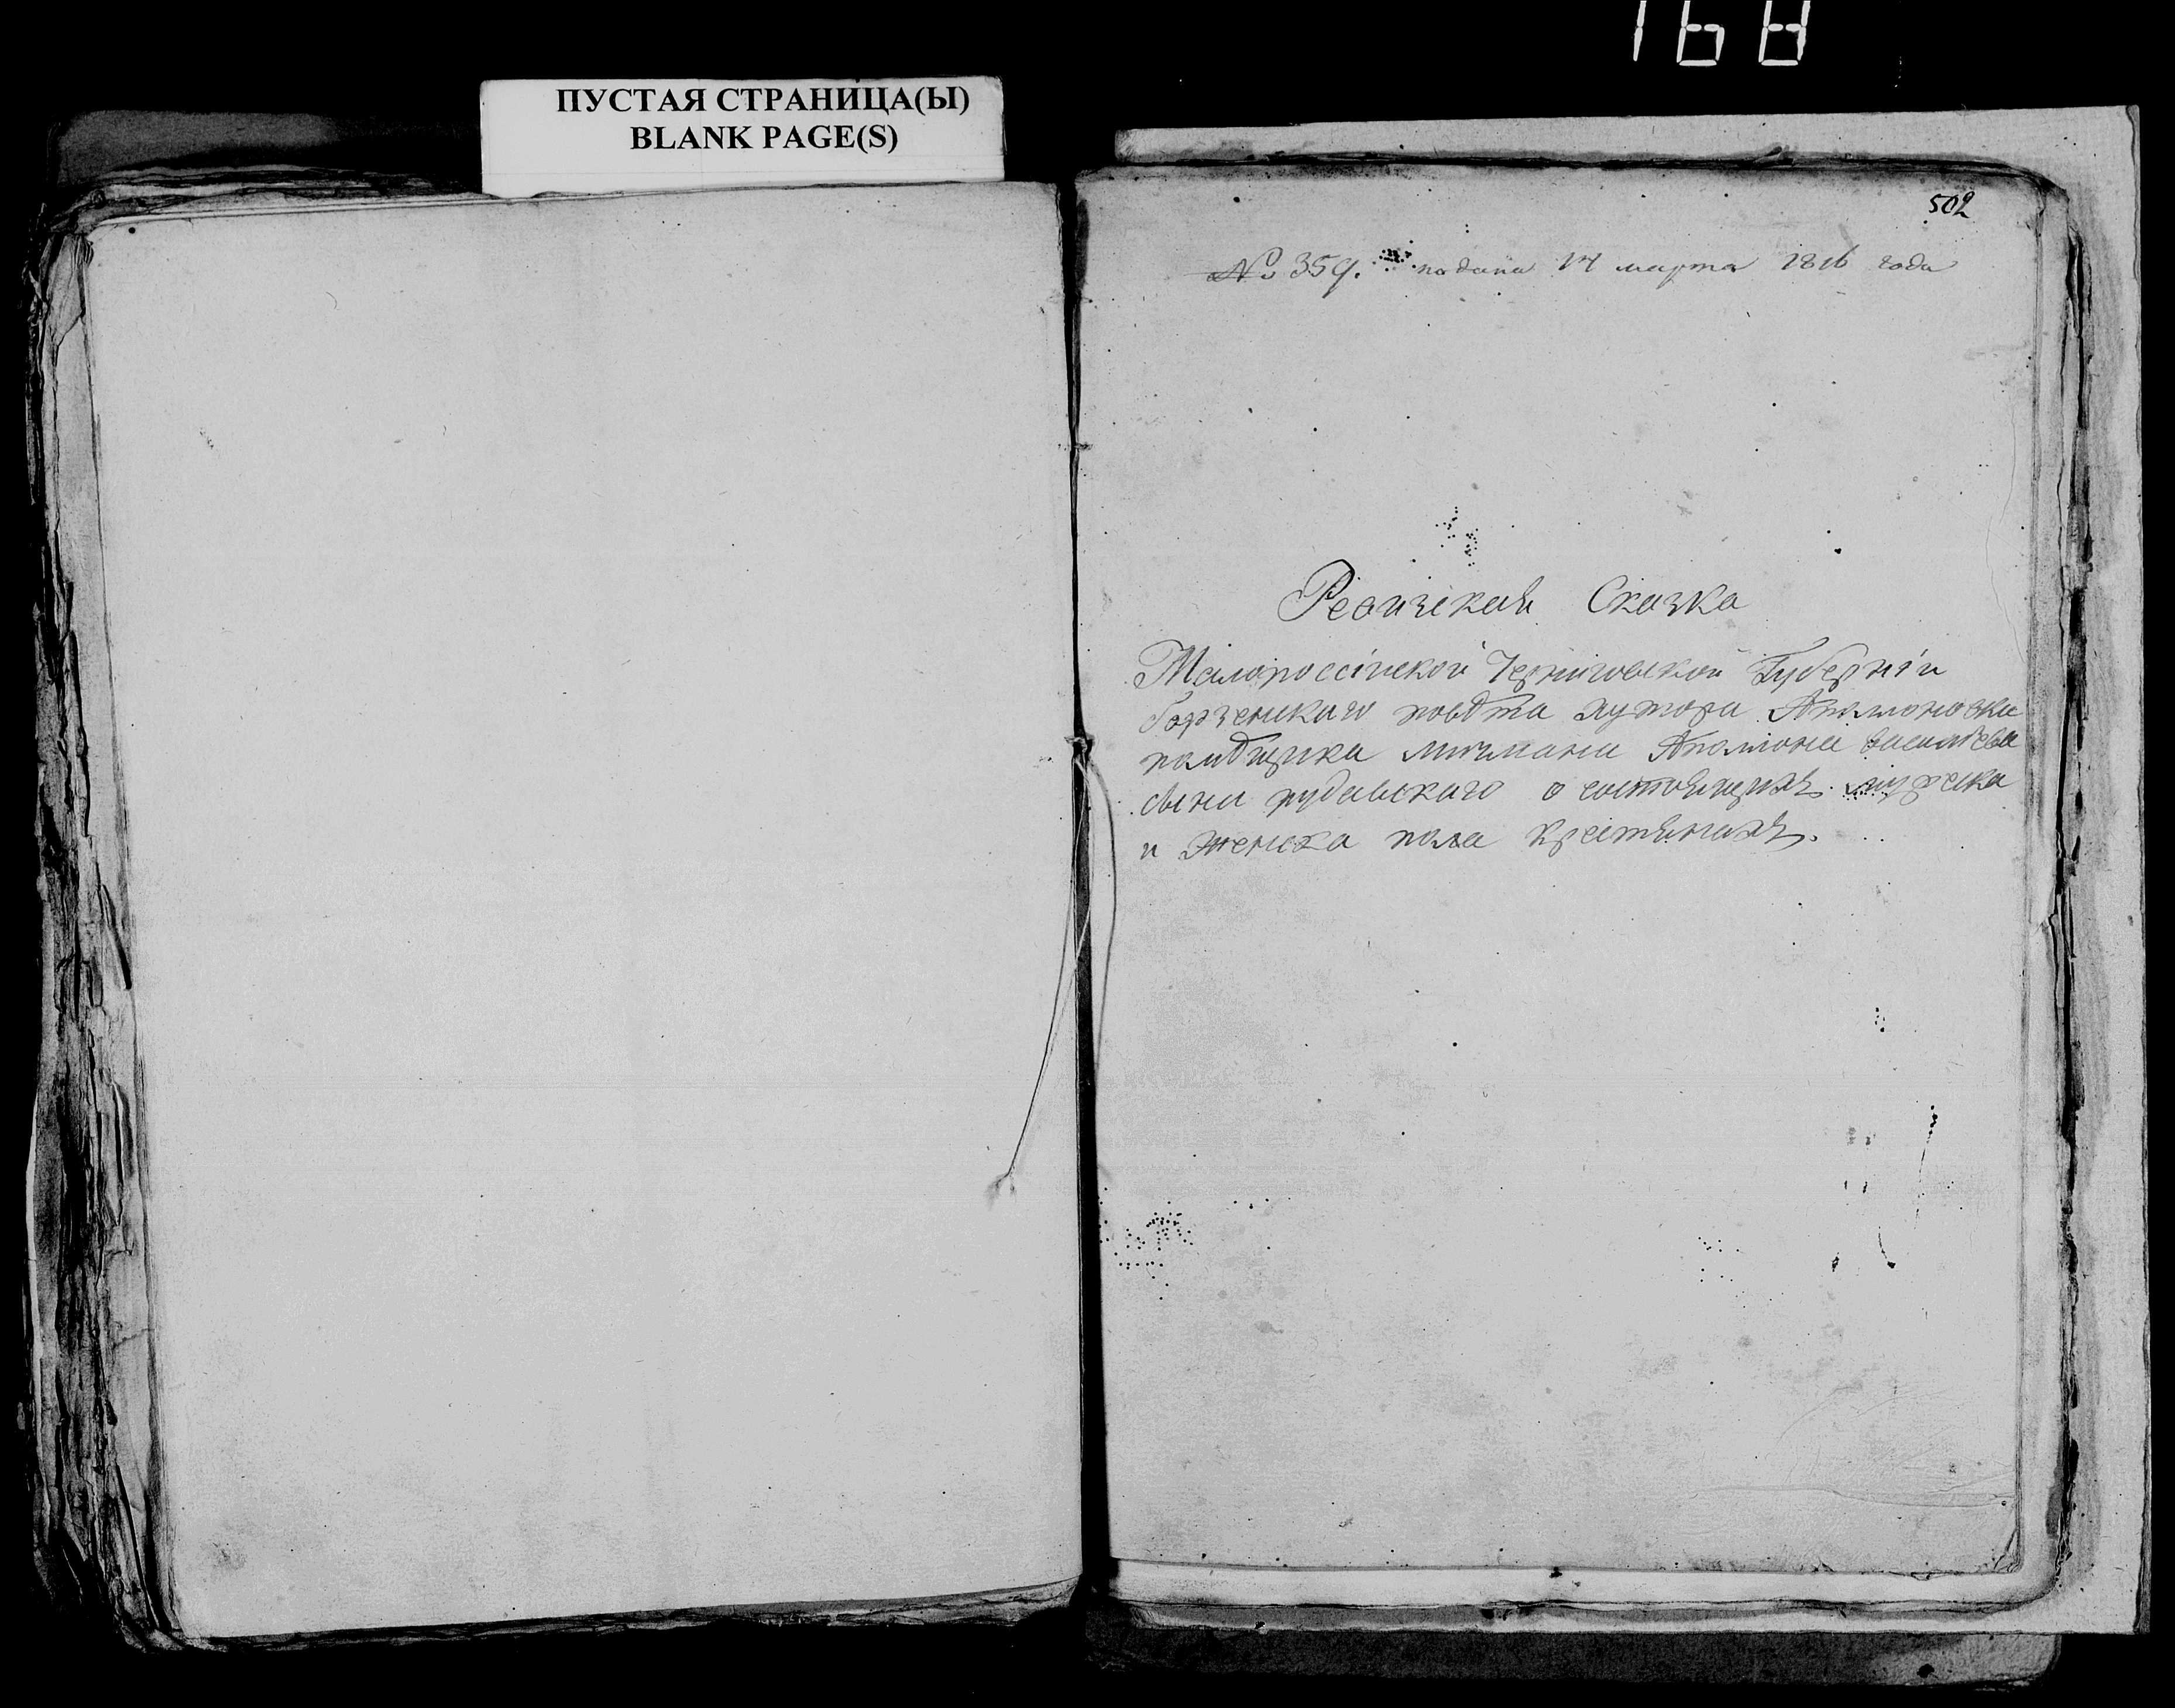 168
ПУСТАЯ СТРАНИЦА(Ы)
BLANK PAGE(S)
502
№ 359. подана 14 марта 1816 года
Ревизская Сказка
Малороссійской Черниговской Губерніи
борзенского повѣта хутора Аполоновки
помѣщика мичмана Аполона васильева
сына рудавского о состоящихъ мужеска
и женска пола крестянахъ.